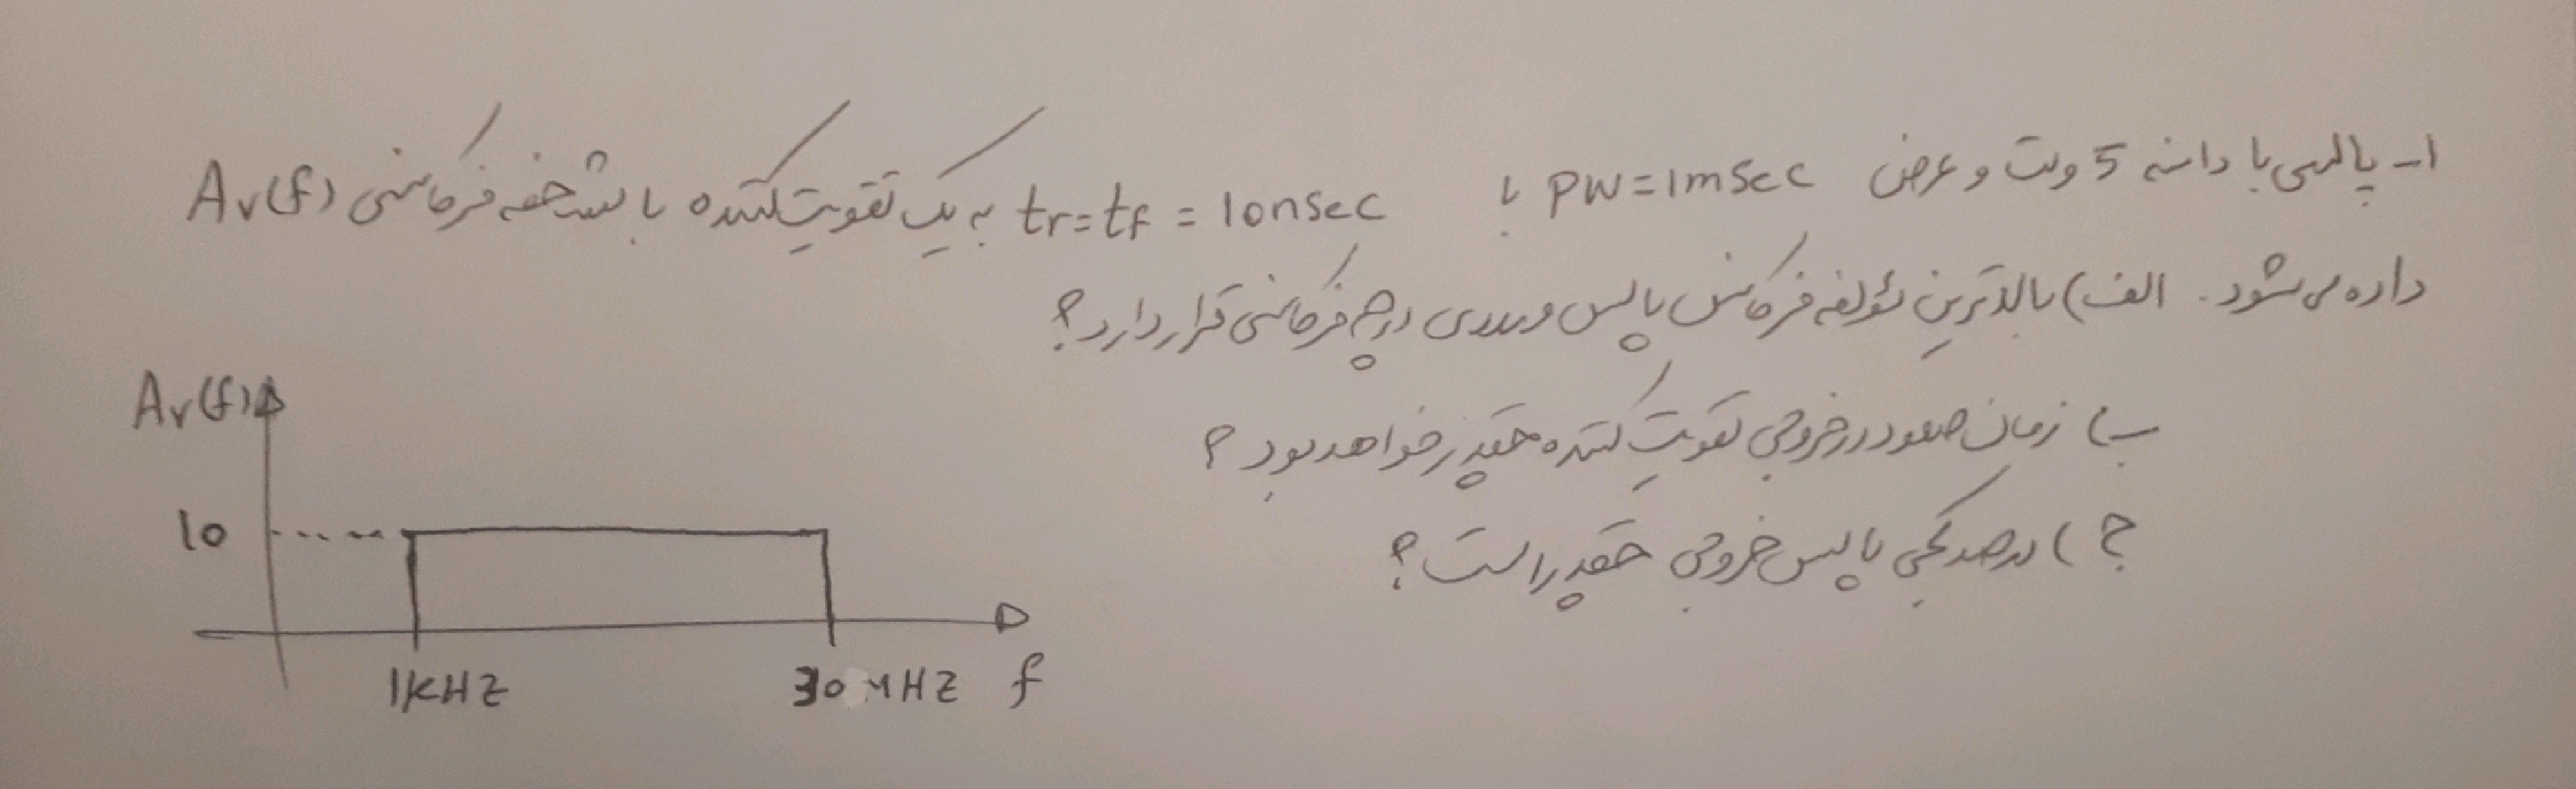 ۱- پالسی با دامنه 5 ولت و عرض PW=1msec با tr=tf = 10nsec به یک تقویت کننده با مشخصه فرکانسی Av(f)
داده می شود. الف) بالاترین مؤلفه فرکانس پالس ورودی در چه فرکانسی قرار دارد؟
ب) زمان صعود در خروجی تقویت کننده چقدر خواهد بود؟
ج) درصد کجی پالس خروجی چقدر است؟
Av(f)
10
1KHZ 30MHZ f